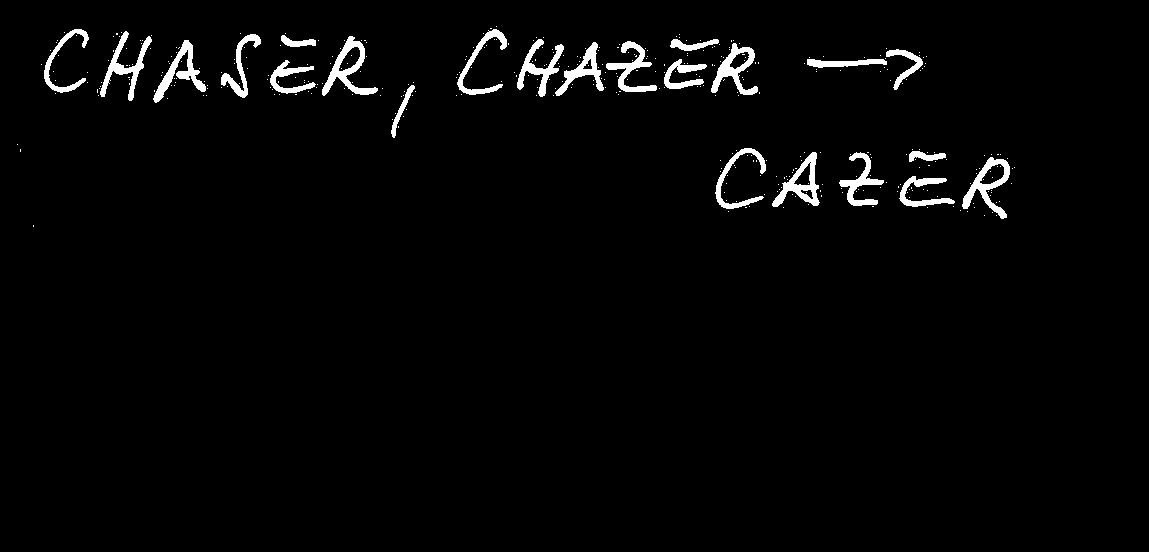 CHASER, CHAZER →
CAZER